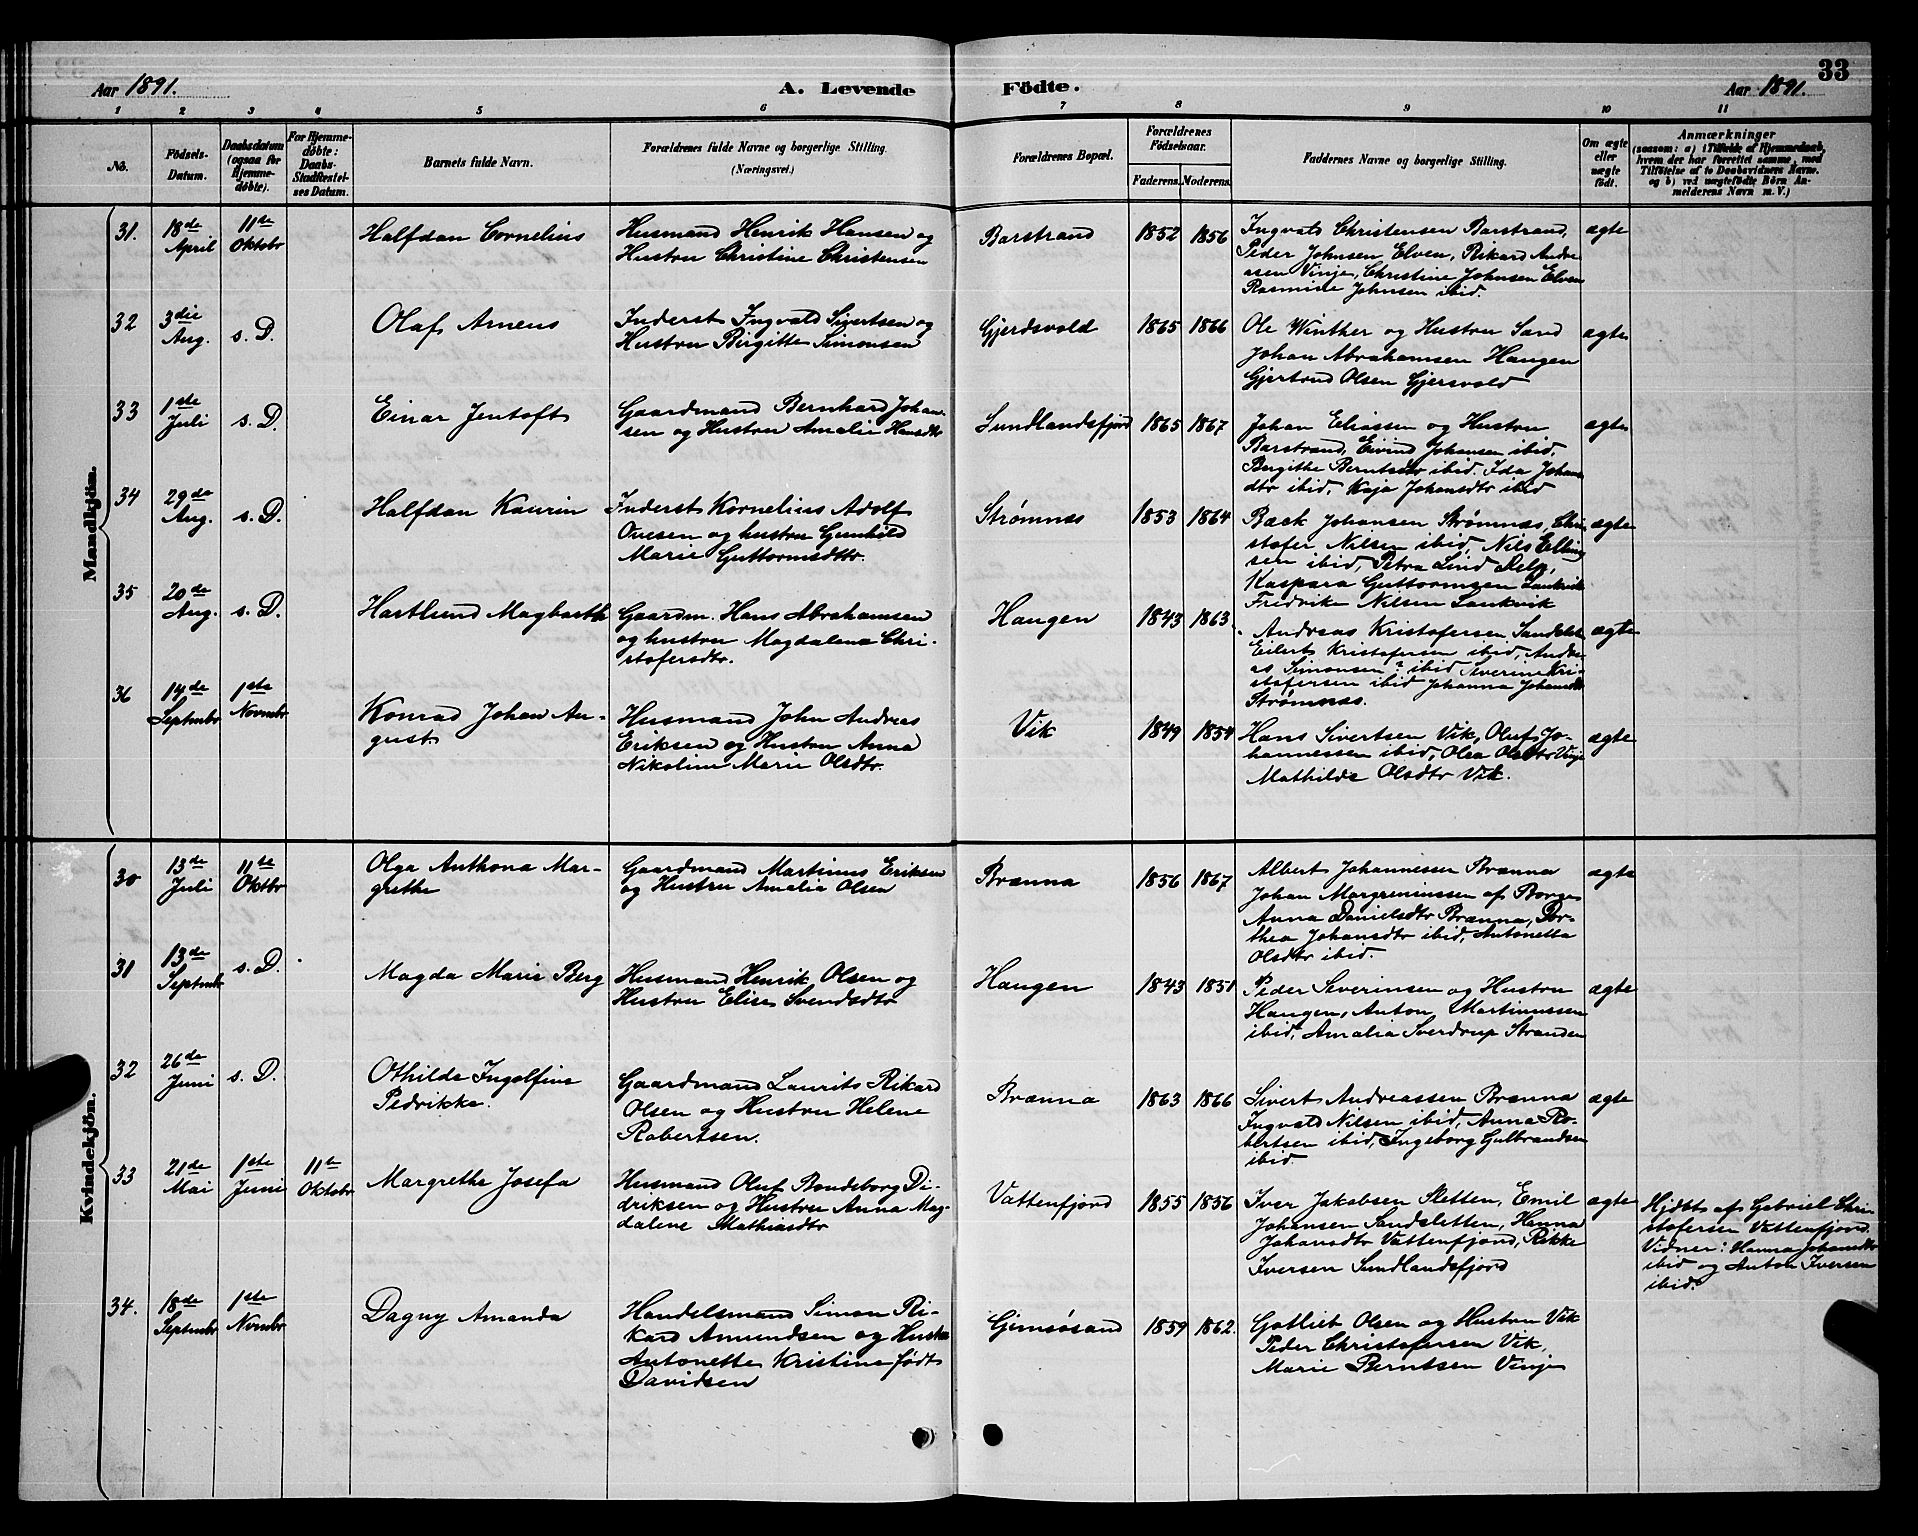 Aar 1891.
A. Levende Födte.
33
Aar 1891.
1 2 3 4 5 6 7 8 9 10 11
No.
Födsels-Datum.
Daabsdatum (ogsaa for Hjemmedøbte).
For Hjemmedøbte: Daabs-Stadfæstelses Datum.
Barnets fulde Navn.
Forældrenes fulde Navne og borgerlige Stilling.
(Næringsvei.)
Forældrenes Bopæl.
Forældrenes Födselsaar.
Faderens. Moderens.
Faddernes Navne og borgerlige Stilling.
Om ægte eller uægte födt.
Anmærkninger
(saasom: a) i Tilfælde af Hjemmedaab, hvem der har forrettet samme, med Tilföielse af to Daabsvidners Navne. og b) ved uægtefödte Börn Anmelderens Navn m. V.)
Mandkjön.
31. 18de April 11te Oktobr Halfdan Cornelius
Husmand Henrik Hansen og
Hustru Christine Christensen
Barstrand 1852 1856
Ingvald Christensen Barstrand,
Peder Johnsen Elven, Rikard Andre-
asen Vinje, Christine Johnsen Elven
Rasmine Johnsen ibid.
ægte
32 3die Aug. s. D. Olaf Arneus
Inderst Ingvald Sivertsen og
Hustru Birgitte Simonsen
Gjerdsvold 1865 1866
Ole Winther og Hustru Sand
Johan Abrahamsen Haugen
Gjertrud Olsen Gjersvold
ægte
33 1ste Juli s. D. Einar Jentoft
Gaardmand Bernhard Johan-
sen og Hustru Amalie Hansdtr
Sundlandsfjord 1865 1867
Johan Eliassen og Hustru
Barstrand, Eivind Johansen ibid,
Bergithe Berntsdtr ibid. Ida Johans
dtr ibid, Kaja Johansdtr ibid
ægte
34 29de Aug. s. D. Halfdan Kaurin
Inderst Kornelius Adolf
Ovesen og hustru Gunhild
Marie Guttormsdtr.
Strømnæs 1853 1864
Bæck Johansen Strømnæs, Chri-
stofer Nilsen ibid, Nils Elling
sen ibid, Petra Lind
Kaspara Guttormsen Laukvik
Fredrike Nilsen Laukvik
ægte
35 20de Aug. s. D. Hartlund Magbarth
Gaardm. Hans Abrahamsen
og hustru Magdalena Chri-
stofersdtr.
Haugen 1843 1863
Andreas Kristofersen
Eilert Kristofersen ibid, Andre-
as Simonsen? ibid Severine Kri-
stofersen ibid Johanna Johansdtr
Strømnæs.
ægte
36 14de Septembr 1ste Novmbr Konrad Johan Au-
gust.
Husmand John Andreas
Eriksen og Hustru Anna
Nikoline Marie Olsdtr.
Vik 1849 1854
Hans Sivertsen Vik, Oluf Jo-
hannessen ibid, Olea Olsdtr Vinje
Mathilde Olsdtr Vik.
ægte
Kvindekjön.
30 13de Juli 11te Oktbr Olga Anthona Mar-
grethe
Gaardmand Martinus Eriksen
og Hustru Amalia Olsen
Brænna 1856 1867
Albert Johannessen Brænna
Johan Margreninssen af Borge
Anna Danielsdtr Brænna, Dor-
thea Johansdtr ibid, Antonetta
Olsdtr ibid.
ægte
31 13de Septmbr s. D. Magda Marie Berg
Husmand Henrik Olsen og
Hustru Elise Svendsdtr
Haugen 1843 1851
Peder Severinsen og Hustru
Haugen, Anton Martinussen
ibid, Amalia Sverdrup Stranden
ægte
32 26de Juni s. D. Othilde Ingolfine
Pedrikke.
Gaardmand Laurits Rikard
Olsen og Hustru Helene
Robertsen.
Brænna 1863 1866
Sivert Andreassen Brænna
Ingvald Nilsen ibid, Anna Ro-
bertsen ibid, Ingeborg Gulbrandsen
ibid.
ægte
33 21de Mai 1ste Juni 11te Oktobr Margrethe Josefa
Husmand Oluf Bondeborg Di-
driksen og Hustru Anna Mag-
dalene Mathiasdtr
Vattenfjord 1855 1856
Iver Jakobsen Sletten, Emil
Johansen Sandsletten, Hanna
Johansdtr Vattenfjord, Rikke
Iversen Sundlandsfjord
ægte
Hjdbt af Gabriel Chri-
stofersen Vattenfjord.
Vidner: Hanna Johansdtr
ibid og Anton Iversen
ibid.
34. 18de Septmbr 1ste Novmbr Dagny Amanda
Handelsmand Simon Ri-
kard Amundsen og Hustru
Antonette Kristine født
Davidsen
Gimsøsand 1859 1862.
Gotlieb Olsen og Hustru Vik
Peder Christofersen Vik,
Marie Berntsen Vinje